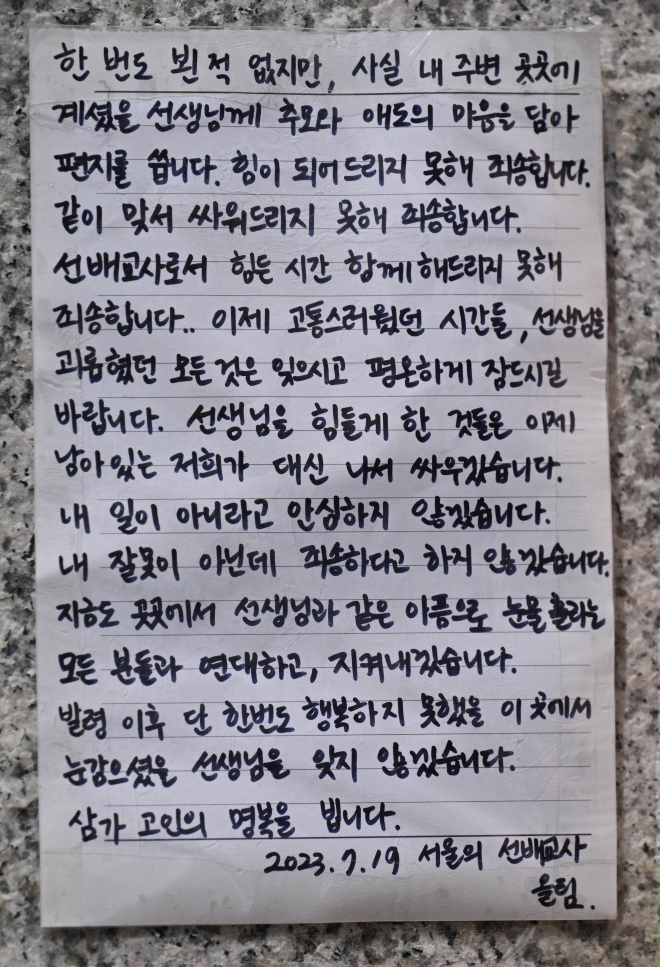 한 번도 뵌 적 없지만, 사실 내 주변 곳곳에
계셨을 선생님께 추모와 애도의 마음을 담아
편지를 씁니다. 힘이 되어드리지 못해 죄송합니다.
같이 맞서 싸워드리지 못해 죄송합니다.
선배교사로서 힘든 시간 함께해드리지 못해
죄송합니다.. 이제 고통스러웠던 시간들, 선생님을
괴롭혔던 모든 것은 잊으시고 평온하게 잠드시길
바랍니다. 선생님을 힘들게 한 것들은 이제
남아있는 저희가 대신 나서 싸우겠습니다.
내 일이 아니라고 안심하지 않겠습니다.
내 잘못이 아닌데 죄송하다고 하지 않겠습니다.
지금도 곳곳에서 선생님과 같은 아픔으로 눈물 흘리는
모든 분들과 연대하고, 지켜내겠습니다.
발령 이후 단 한번도 행복하지 못했을 이 곳에서
눈감으셨을 선생님을 잊지 않겠습니다.
삼가 고인의 명복을 빕니다.
2023.7.19 서울의 선배교사
올림.